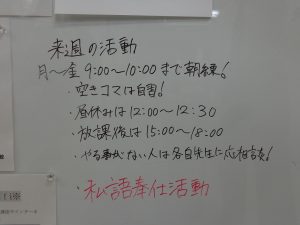 来週の活動
月〜金 9:00〜10:00まで朝練!
・空きコマは自習!
・昼休みは12:00〜12:30
・放課後は15:00〜18:00
・やる事がない人は各自先生に応相談!
・私語奉仕活動